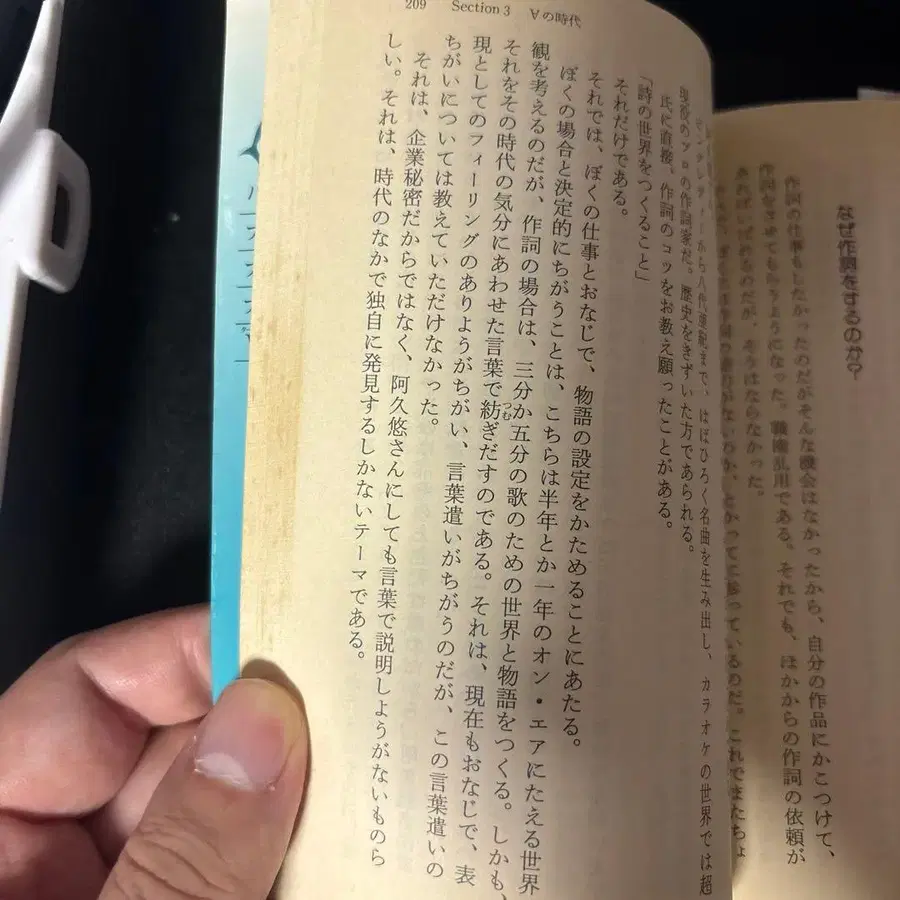 なぜ作詞をするのか?
作詞の仕事もしたかったのだがそんな機会はなかったから、自分の作品にかこつけて、
作詞をさせてもらうようになった。職権乱用である。それでも、ほかからの作詞の依頼が
あればいばれるのだが、そうはならなかった。
参っているのだ。これでまたちょ
209 Section 3 ∀の時代
から八代亜紀まで、はばひろく名曲を生み出し、カラオケの世界では超
現役のプロの作詞家だ。歴史をきずいた方であられる。
氏に直接、作詞のコツをお教え願ったことがある。
「詩の世界をつくること」
それだけである。
それでは、ぼくの仕事とおなじで、物語の設定をかためることにあたる。
ぼくの場合と決定的にちがうことは、こちらは半年とか一年のオン・エアにたえる世界
観を考えるのだが、作詞の場合は、三分か五分の歌のための世界と物語をつくる。しかも、
それをその時代の気分にあわせた言葉で紡つむぎだすのである。それは、現在もおなじで、表
現としてのフィーリングのありようがちがい、言葉遣いがちがうのだが、この言葉遣いの
ちがいについては教えていただけなかった。
それは、企業秘密だからではなく、阿久悠さんにしても言葉で説明しようがないものら
しい。それは、時代のなかで独自に発見するしかないテーマである。